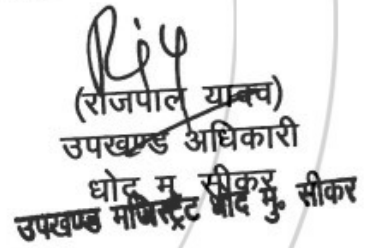 (राजपाल यादव)
उपखण्ड अधिकारी
धोद मु. सीकर
उपखण्ड मजिस्ट्रेट धोद मु. सीकर